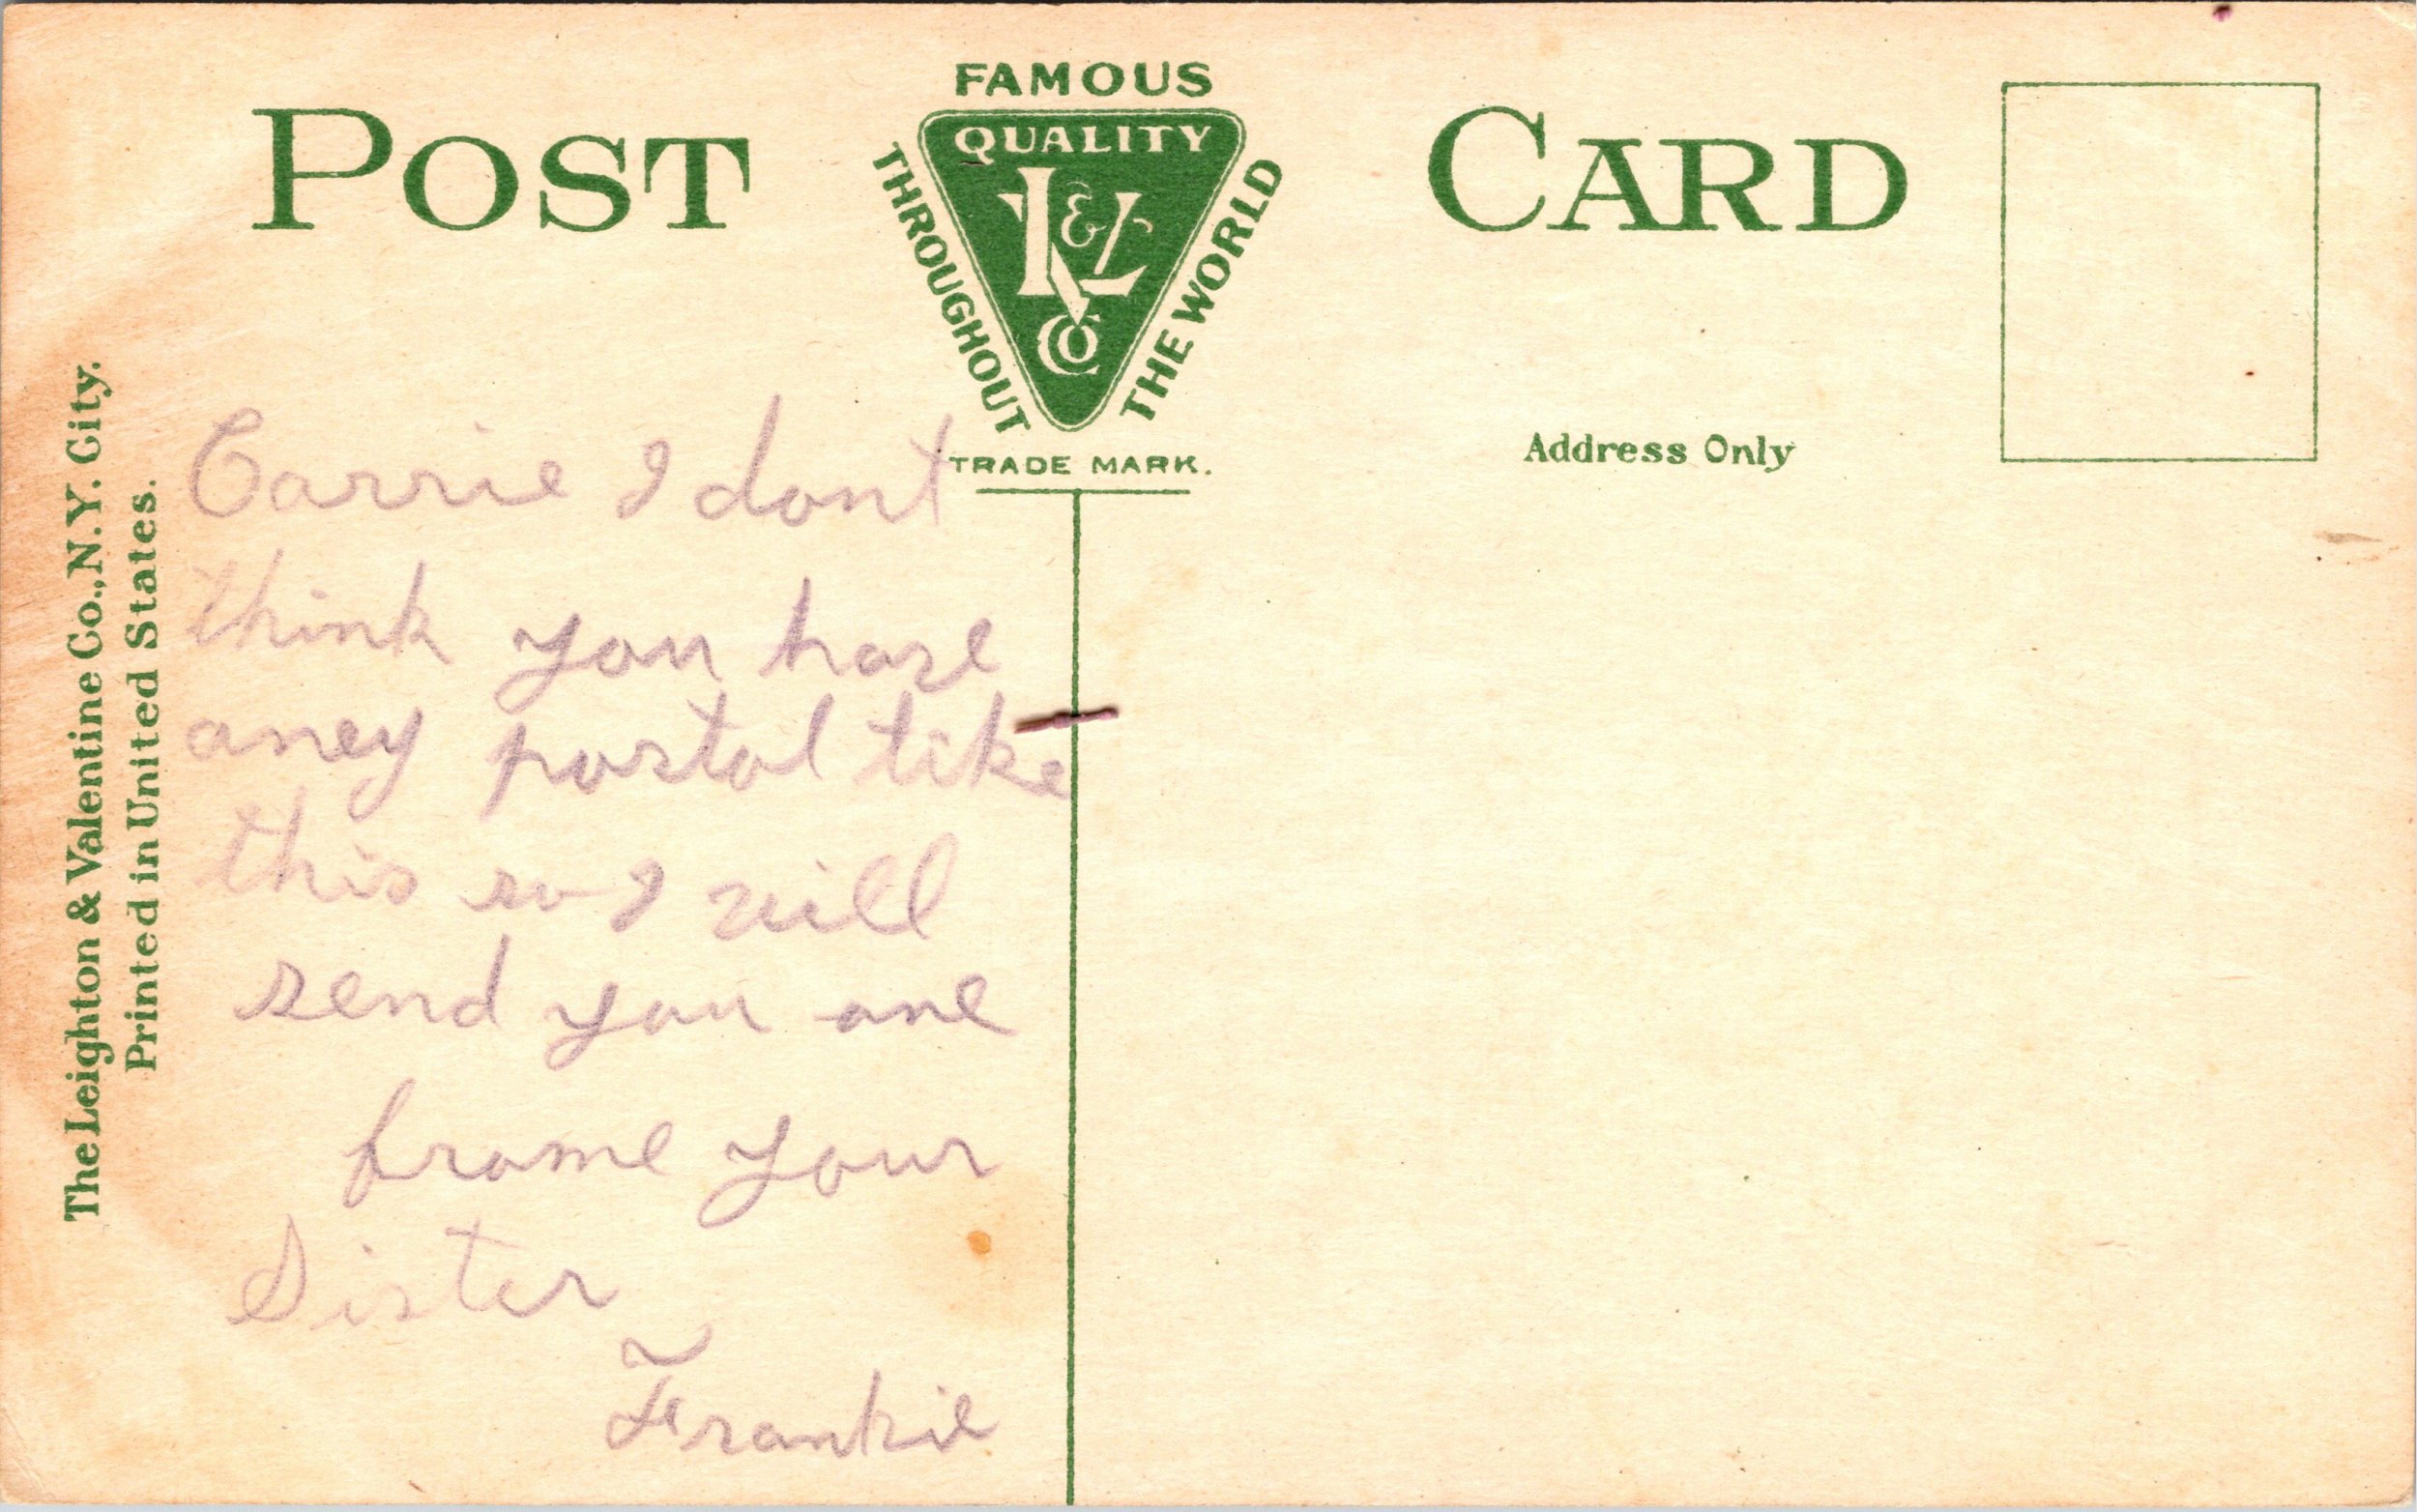 POST CARD
FAMOUS
QUALITY
THROUGHOUT
THE WORLD
L&V
Co
TRADE MARK.
Address Only
The Leighton & Valentine Co., N.Y. City.
Printed in United States.
Carrie I dont
think you have
aney postal like
this so I will
send you one
frome your
Sister
Frankie